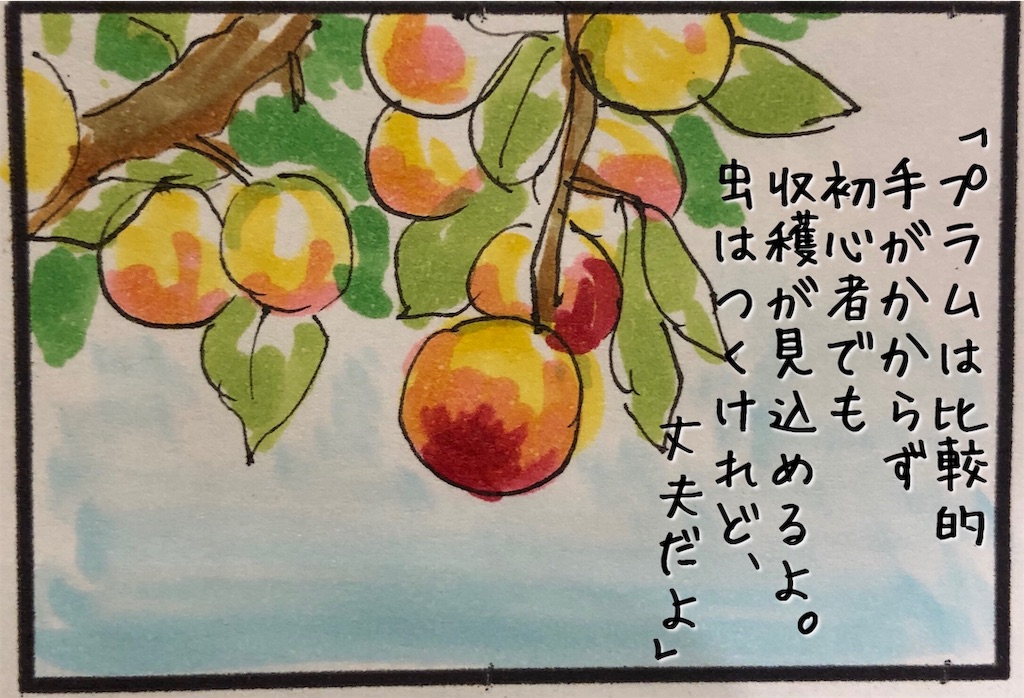 「プラムは比較的
手がかからず
初心者でも
収穫が見込めるよ。
虫はつくけれど、
丈夫だよ」